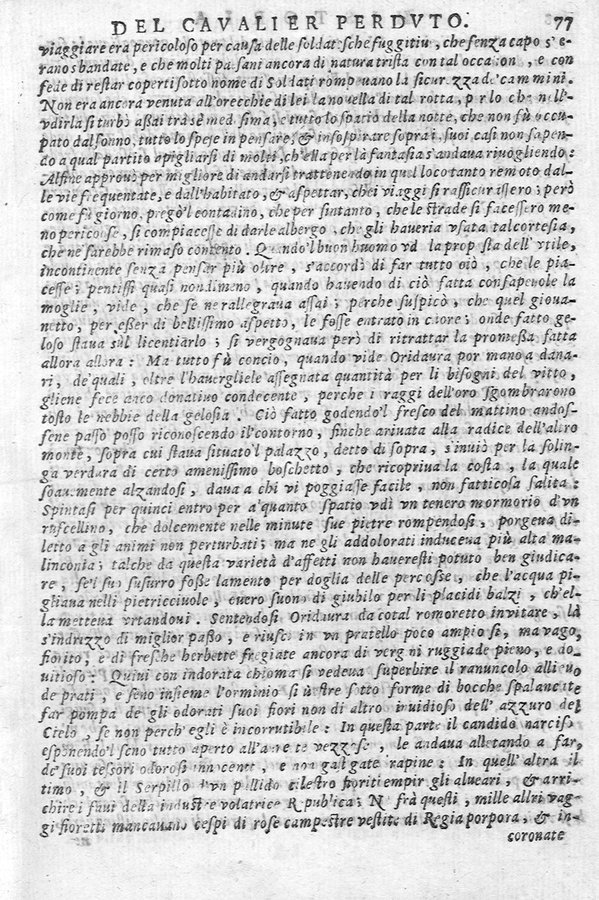 DEL CAVALIER PERDVTO. 77
viaggiare era pericoloso per causa delle soldatesche fuggitiu, che senza capo s'e-
rano sbandate, e che molti pasani ancora di natura trista con tal occasion, e con
fede di restar coperti sotto nome di Soldati rompeuano la sicurezza de' cammini.
Non era ancora venuta all'orecchie di lei la nouella di tal rotta, per lo che nell'-
vdirla si turbò assai trà sè medesima, e tutto lo spatio della notte, che non fù occu-
pato dal sonno, tutto lo spese in pensare, & in sospirare sopra i suoi casi non sapen-
do a qual partito apigliarsi di molti, ch'ella per là fantasia s'andaua riuogliendo:
Alfine approuò per migliore di andarsi trattenendo in quel loco tanto remoto dal-
le vie frequentate, e dall'habitato, & aspettar, che i viaggi si rassicurassero; però
come fù giorno, pregò'l contadino, che per fintanto, che le strade si facessero me-
no pericolose, si compiacesse di darle albergo, che gli haueria vsata tal cortesia,
che ne sarebbe rimaso contento. Quando'l buon huomo vdì la proposta dell'vtile,
incontinente senza pensar più oltre, s'accordò di far tutto ciò, che le pia-
cesse; pentissi quasi nondimeno, quando hauendo di ciò fatta consapeuole la
moglie, vide, che se ne rallegraua assai; perche suspicò, che quel gioua-
netto, per esser di bellissimo aspetto, le fosse entrato in cuore; onde fatto ge-
loso staua sùl licentiarlo; si vergognaua però di ritrattar la promessa fatta
allora allora: Ma tutto fù concio, quando vide Oridaura por mano a dana-
ri, de' quali, oltre l'hauergliele assegnata quantità per li bisogni del vitto,
gliene fece anco donatiuo condecente, perche i raggi dell'oro sgombrarono
tosto le nebbie della gelosia. Ciò fatto godendo'l fresco del mattino andos-
sene passo passo riconoscendo il contorno, finche ariuata alla radice dell'altro
monte, sopra cui staua situato'l palazzo, detto di sopra, s'inuiò per la solin-
ga verdura di certo amenissimo boschetto, che ricopriua la costa, la quale
soauemente alzandosi, daua a chi vi poggiasse facile, non fatticosa salita:
Spintasi per quinci entro per alquanto spatio vdì vn tenero mormorio d'vn
ruscellino, che dolcemente nelle minute sue pietre rompendosi, porgeua di-
letto a gli animi non perturbati; ma ne gli addolorati induceua più alta ma-
linconia; talche da questa varietà d'affetti non haueresti potuto ben giudica-
re, se'l suo susurro fosse lamento per doglia delle percosse, che l'acqua pi-
gliaua nelli pietricciuole, ouero suono di giubilo per li placidi balzi, ch'el-
la metteua vrtandoui. Sentendosi Oridaura da cotal romoretto inuitare, là
s'indrizzò di miglior passo, e riuscì in vn pratello poco ampio sì, ma vago,
fiorito, e di fresche herbette fregiate ancora di vergini ruggiade pieno, e do-
uitioso: Quiui con indorata chioma si vedeua superbire il ranuncolo alliuuo
de prati, e seno insieme l'orminio si uestre sotto forme di bocche spalancate
far pompa de gli odorati suoi fiori non di altro inuidioso dell'azzuro del
Cielo, se non perch'egli è incorrutibile: In questa parte il candido narciso
esponendo'l seno tutto aperto all'aure te vezzose, le andaua allettando a far,
de' suoi tessori odorosi innocente, e non gastigate rapine: In quell'altra il
timo, & il Serpillo d'vn pallido cilestro fioriti empir gli alueari, & arri-
chire i faui della industre volatrice Republica; Ne frà questi, mille altri vag-
gi fioretti mancauano cespi di rose campestre vestite di Regia porpora, & in-
coronate